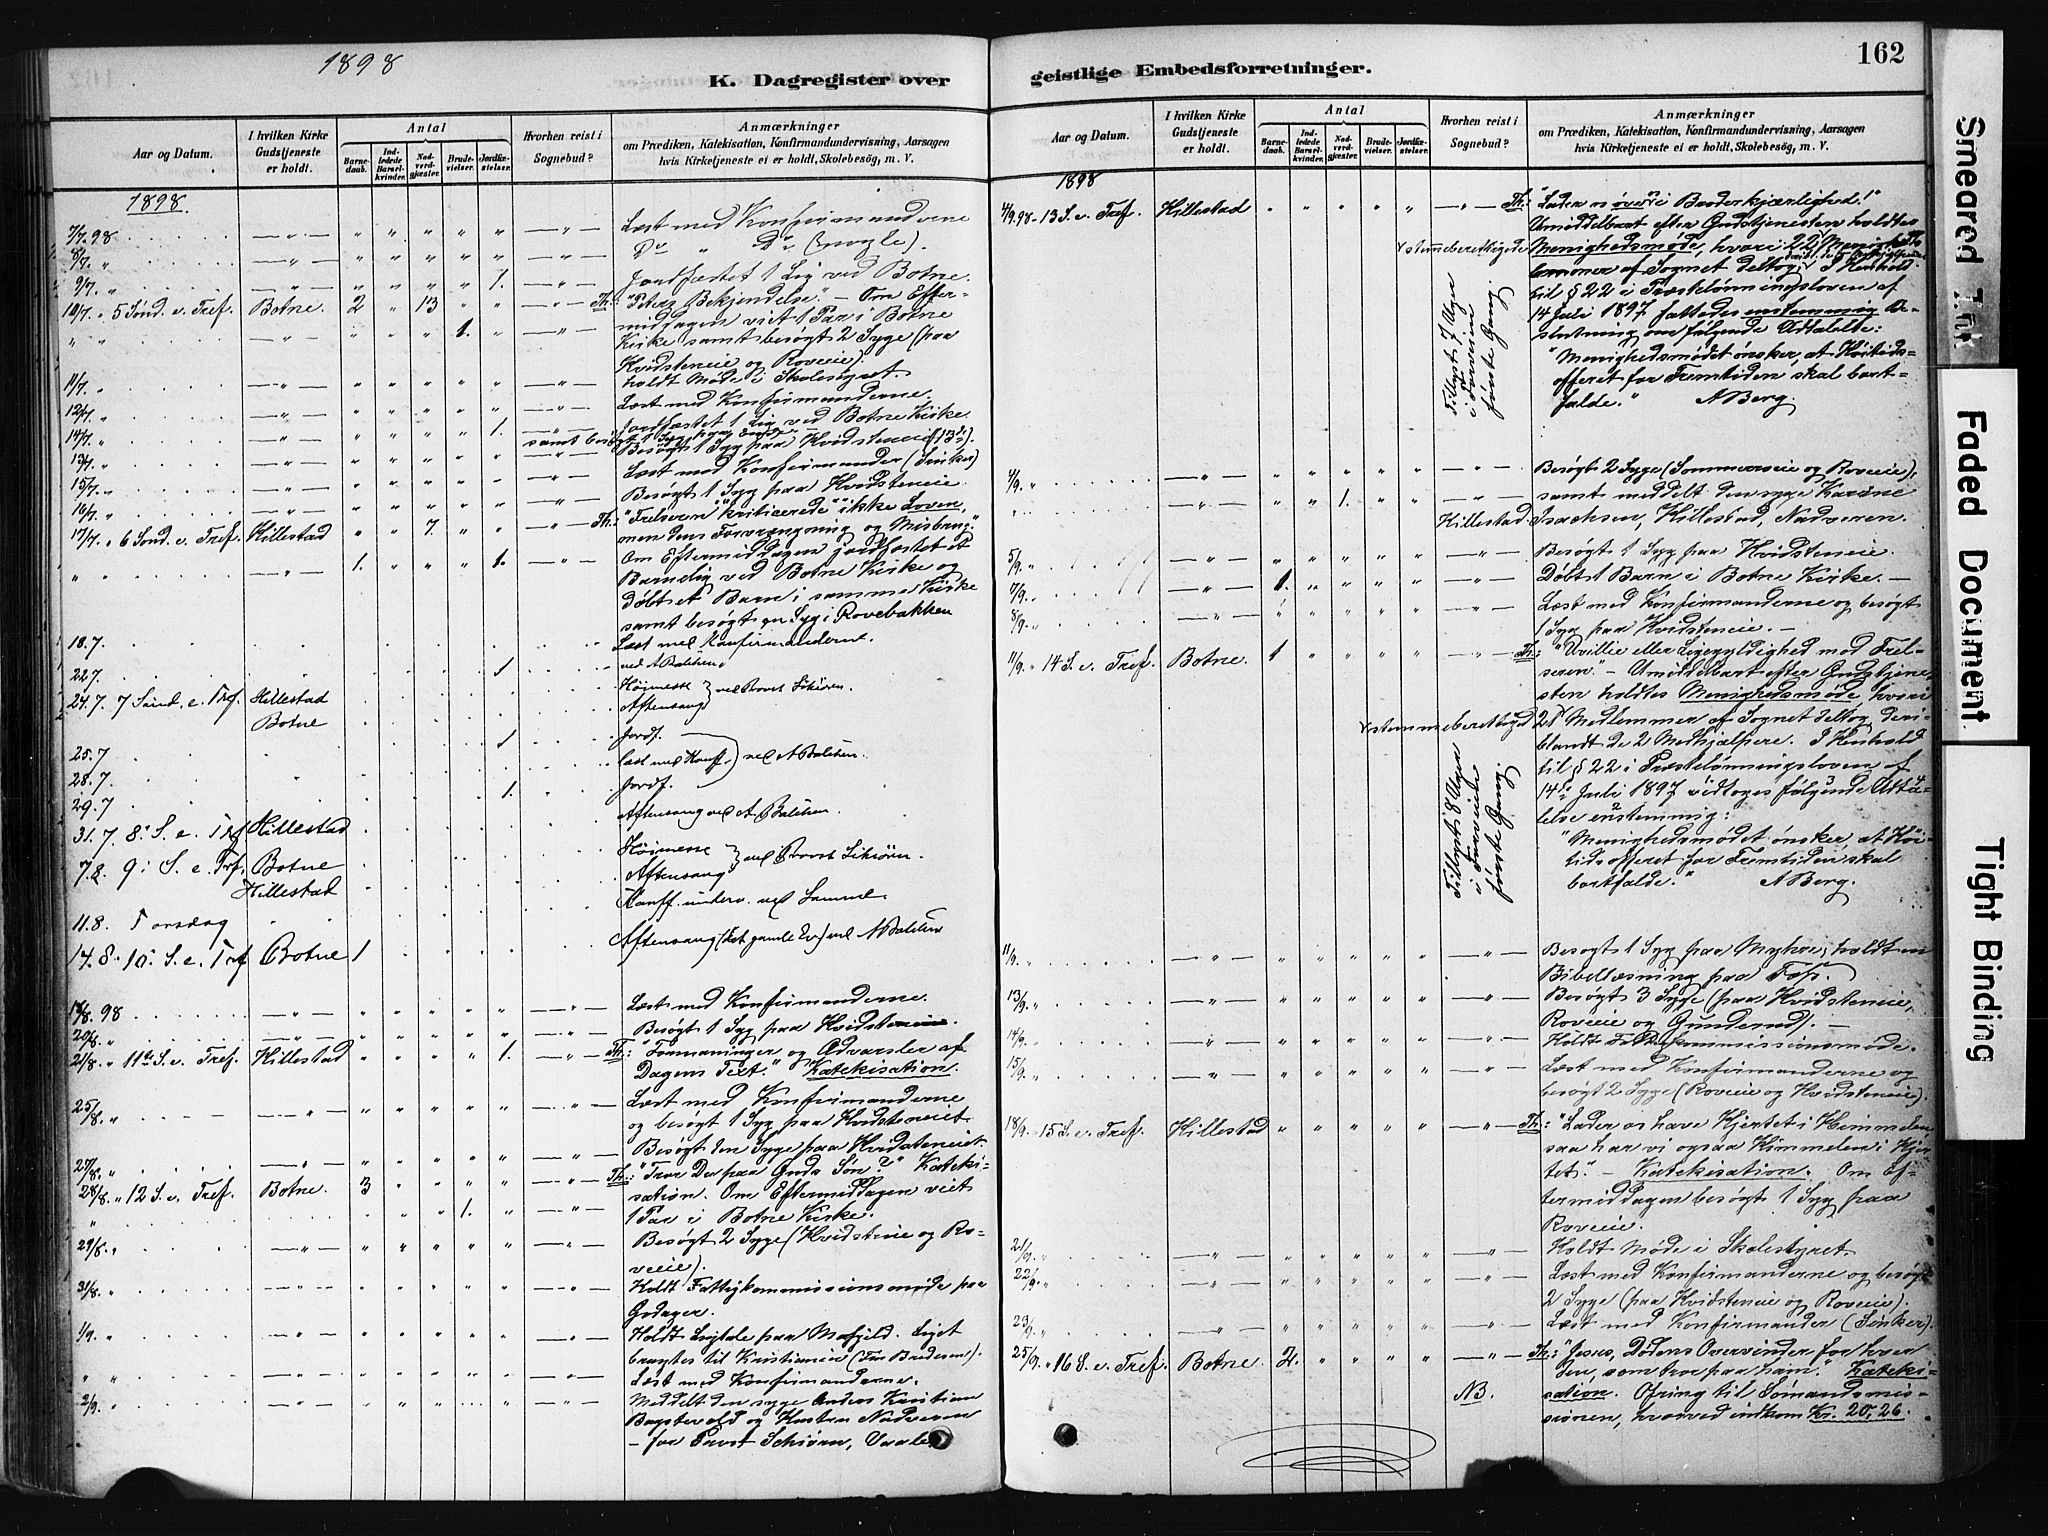 1898
K. Dagregister over
Aar og Datum.
I hvilken Kirke Gudstjeneste er holdt.
Antal
Barnedaab.
Indledede Barselkvinder.
Nadverdgjæster.
Brudevielser.
Jordfæstelser.
Hvorhen reist i Sognebud?
Anmærkninger
om Prædiken, Katekisation, Konfirmandundervisning, Aarsagen
hvis Kirketjeneste ei er holdt, Skolebesøg, m. V.
1898.
7/7 98 Læst med Konfirmanderne
8/7 " Do " Do (nogle).
9/7 " 1. Jordfæstet 1 Lig ved Botne.
10/7 " 5 Sønd. e. Tref. Botne. 2 " 13 " " Th: "Peters Bekjendelse." – Om Efter-
" " 1. middagen viet 1 Par i Botne
Kirke samt besøgt 2 Syge (paa
Hvidsteneie og Roveie).
11/7 " holdt Møde i Skolestyret.
12/7 " Læst med Konfirmanderne.
14/7 " 1. Jordfæstet 1 Lig ved Botne Kirke
samt besøgt 1 Syg
13/7 " Besøgt 1 Syg paa Hvidsteneie (13de).
15/7 " Læst med Konfirmander (Sinker)
16/7 " Besøgt 1 Syg paa Hvidsteneie.
17/7 " 6 Sønd. e. Tref. Hillestad " " 7 " " Th: "Frelseren "kriticerede" ikke Loven,
men dens Forvrængning og Misbrug."
" " 1. " " " 1. Om Eftermiddagen jordfæstet et
Barnelig ved Botne Kirke og
døbt et Barn i samme Kirke
samt besøgt en Syg i Rovebakken
18.7. Læst med Konfirmanderne.
22.7. 1 ved A Balchen.
24.7. 7 Sønd. e. Tref. Hillestad Høimesse } ved Provst Schiörn.
Botne Aftensang
25.7 1 Jordf.
28.7. læst med Konf. } ved A Balchen.
29.7 1. Jordf.
31.7. 8: S. e. Tref Hillestad Aftensang ved A Balchen.
7.8. 9: S. e. Tref. Botne Høimesse } ved Provst Schiörn.
Hillestad Aftensang
11.8. Torsdag Konf. underv. ved Samme.
14.8. 10: S. e. Tref Botne 1 Aftensang (det gamle Ev) ved A Balchen
98 Læst med Konfirmanderne.
20/8. " Besøgt 1 Syg paa Hvidsteneie.
21/8. " 11te S. e. Tref. Hillestad 1. Th: "Formaninger og Advarsler af
Dagens Text." Katekisation.
25/8. " Læst med Konfirmanderne
og besøgt 1 Syg paa Hvidsteneiet.
27/8. " Besøgt den Syge paa Hvidsteneiet.
28/8. " 12 S. e. Tref. Botne. 3 Th: "Tror Du paa Guds Søn?" Kateki-
sation. Om Eftermiddagen viet
" 1. 1 Par i Botne Kirke.
29/8. " Besøgt 2 Syge (Hvidsteneie og Ro-
veeie).
31/8. " Holdt Fattigkommissionsmøde paa
Godager.
1/9. " Holdt Ligtale paa Liget
bragtes til Kristiania
" " Læst med Konfirmanderne.
2/9. " Meddelt den syge Anders Kristian
og Hustru Nadveren
– for Provst Schiörn,
162
geistlige Embedsforretninger.
Aar og Datum.
I hvilken Kirke Gudstjeneste er holdt.
Antal
Barnedaab.
Indledede Barselkvinder.
Nadverdgjæster.
Brudevielser.
Jordfæstelser.
Hvorhen reist i Sognebud?
Anmærkninger
om Prædiken, Katekisation, Konfirmandundervisning, Aarsagen
hvis Kirketjeneste ei er holdt, Skolebesøg, m. V.
1898
4/9. 98 – 13 S. e. Tref. Hillestad Th: "Lader os øve i Broderkjærlighed!"
Umiddelbart efter Gudstjenesten holdtes
v stemmeberettigede Menighedsmøde, hvori 22 v
af Sognet deltog. I Henhold
til § 22 i Præstelønningsloven af
14 Juli 1897 fattedes enstemmig Be-
slutning om følgende Udtalelse:
"Menighedsmødet ønsker, at Høitids-
offeret for Fremtiden skal bort-
falde." A Berg.
Tillyst 7 Uger
i Forveien
første Gang.
4/9. " Besøgt 2 Syge (Sommerseie og Roveie),
1. samt meddelt den syge Karine
Hillestad. Isachsen, Hillestad, Nadveren.
5/9. " Besøgt 1 Syg paa Hvidsteneie.
7/9. " 1. Døbt 1 Barn i Botne Kirke. –
8/9. " Læst med Konfirmanderne og besøgt
1 Syg paa Hvidsteneie. –
11/9. " 14 S. e. Tref. Botne. 1 Th: "Uvillie eller Ligegyldighed mod Frel-
seren." – Umiddelbart efter Gudstjene-
sten holdtes Menighedsmøde, hvori
v stemmeberettiged 21 v Medlemmer af Sognet deltog, deri-
blandt de 2 Medhjælpere. I Henhold
til § 22 i Præstelønningsloven af
14de Juli 1897 vedtoges følgende Udta-
lelse enstemmig:
"Menighedsmødet ønsker, at Høi-
tidsofferet for Fremtiden skal
bortfalde." A Berg.
Tillyst 8 Uger
i Forveien
første Gang.
11/9. " Besøgt 1 Syg paa Myhre; holdt en
Bibellæsning paa
13/9. " Besøgt 3 Syge (paa Hvidsteneie,
Roveie og Gunderød). –
14/9. " Holdt
15/9. " Læst med Konfirmanderne og
besøgt 2 Syge (Roveie og Hvidsteneie).
18/9. – 15 S. e. Tref. Hillestad Th: "Lader os have Hjertet i Himmelen
saa har vi ogsaa Himmelen i Hjer-
tet." – Katekisation. Om Ef-
termiddagen besøgt 1 Syg paa
Roveie.
21/9. " Holdt Møde i Skolestyret.
22/9. " Læst med Konfirmanderne og besøgt
2 Syge (paa Hvidsteneie og Roveie).
23/9. " Læst med Konfirmander (Sinker).
25/9. " 16 S. e. Tref. Botne. 2. Th: "Jesus, Dødens Overvinder for hver
den, som tror paa ham." Kateki-
NB. sation. Ofring til Sømandsmis-
sionen, hvorved indkom Kr. 20,26.
Smeared Ink
Faded Document
Tight Binding